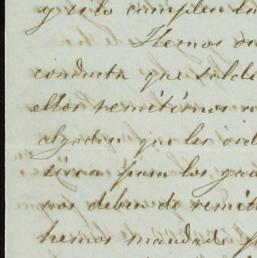 y si lo cumplen
Hemos
conducta que
ellos remitimos
algodon que les
sirva para los
nos deben de remit
hemos mandado